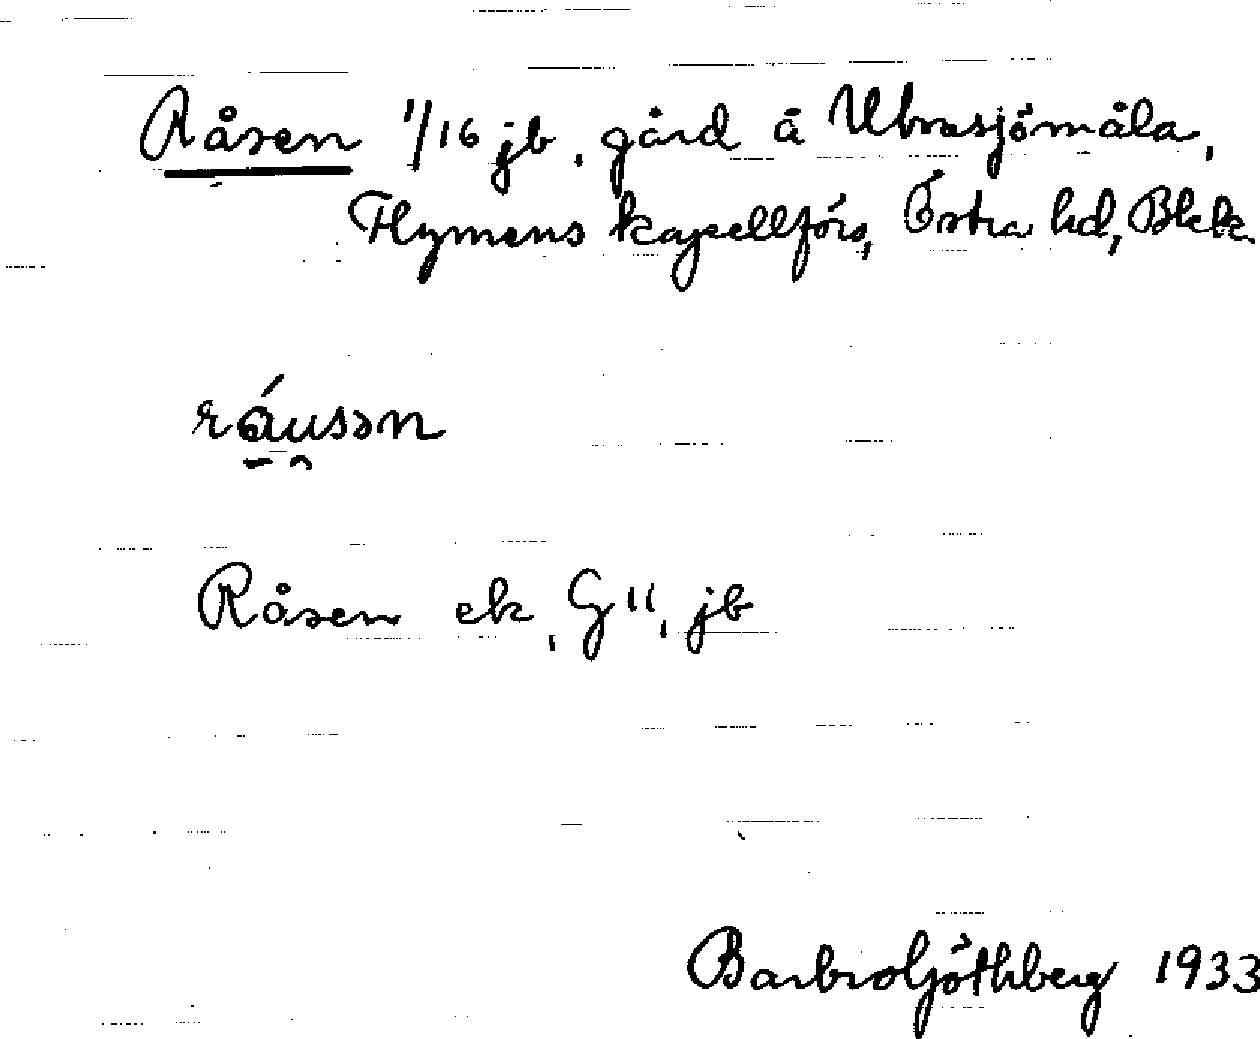 Råsen 1/16 jb, gård å Ubrasjömåla,
Flymens kapellförs, Östra hd, Blek.
ráusən
Råsen ek, G 11, jb
Barbro Göthberg 1933